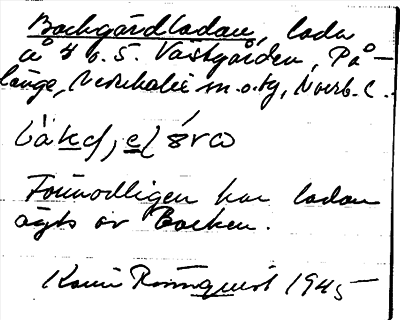 Backgårdladan, lada
å 4 o. 5. Västgården, På-
länge, Nederkalix m. o. tg, Norrb. l.
Förmodligen har ladan
ägts av Backen.
Karin Rönnquist 1945